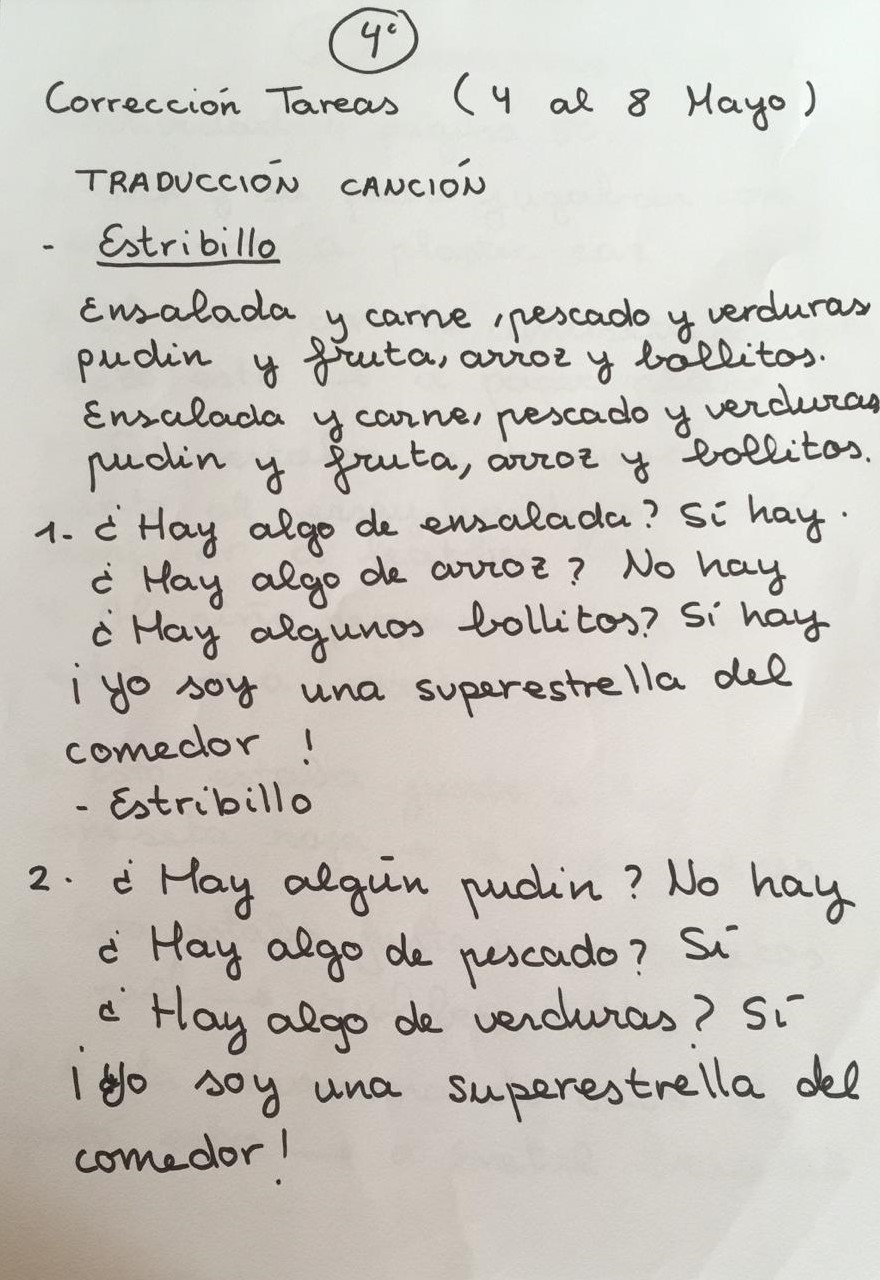 4º
Corrección Tareas (4 al 8 Mayo)
TRADUCCIÓN CANCIÓN
- Estribillo
Ensalada y carne, pescado y verduras
pudin y fruta, arroz y bollitos.
Ensalada y carne, pescado y verduras
pudin y fruta, arroz y bollitos.
1- ¿Hay algo de ensalada? Sí hay.
¿Hay algo de arroz? No hay
¿Hay algunos bollitos? Sí hay
¡Yo soy una superestrella del
comedor!
- Estribillo
2. ¿Hay algún pudin? No hay
¿Hay algo de pescado? Sí
¿Hay algo de verduras? Sí
¡Yo soy una superestrella del
comedor!